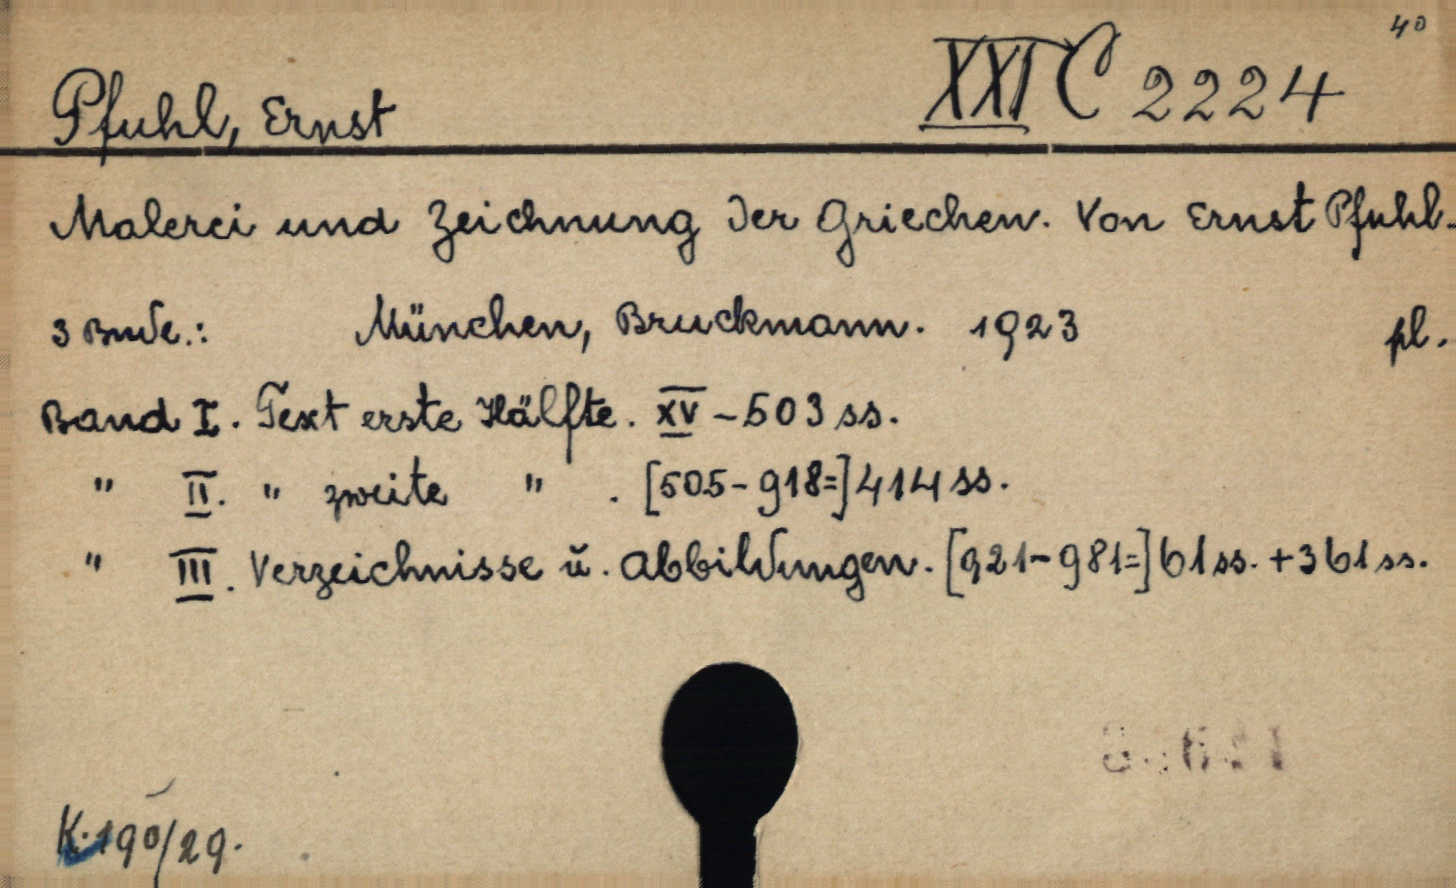 40
Pfuhl, Ernst XXI C 2224
Malerei und Zeichnung der Griechen. Von Ernst Pfuhl.
3 Bnde.: München, Bruckmann. 1923 pl.
Band I. Text erste Hälfte. XV - 503 ss.
" II. " zweite " . [505-918=] 414 ss.
" III. Verzeichnisse ŭ. Abbildungen. [921-981=] 61 ss. + 361 ss.
K. 190/29.